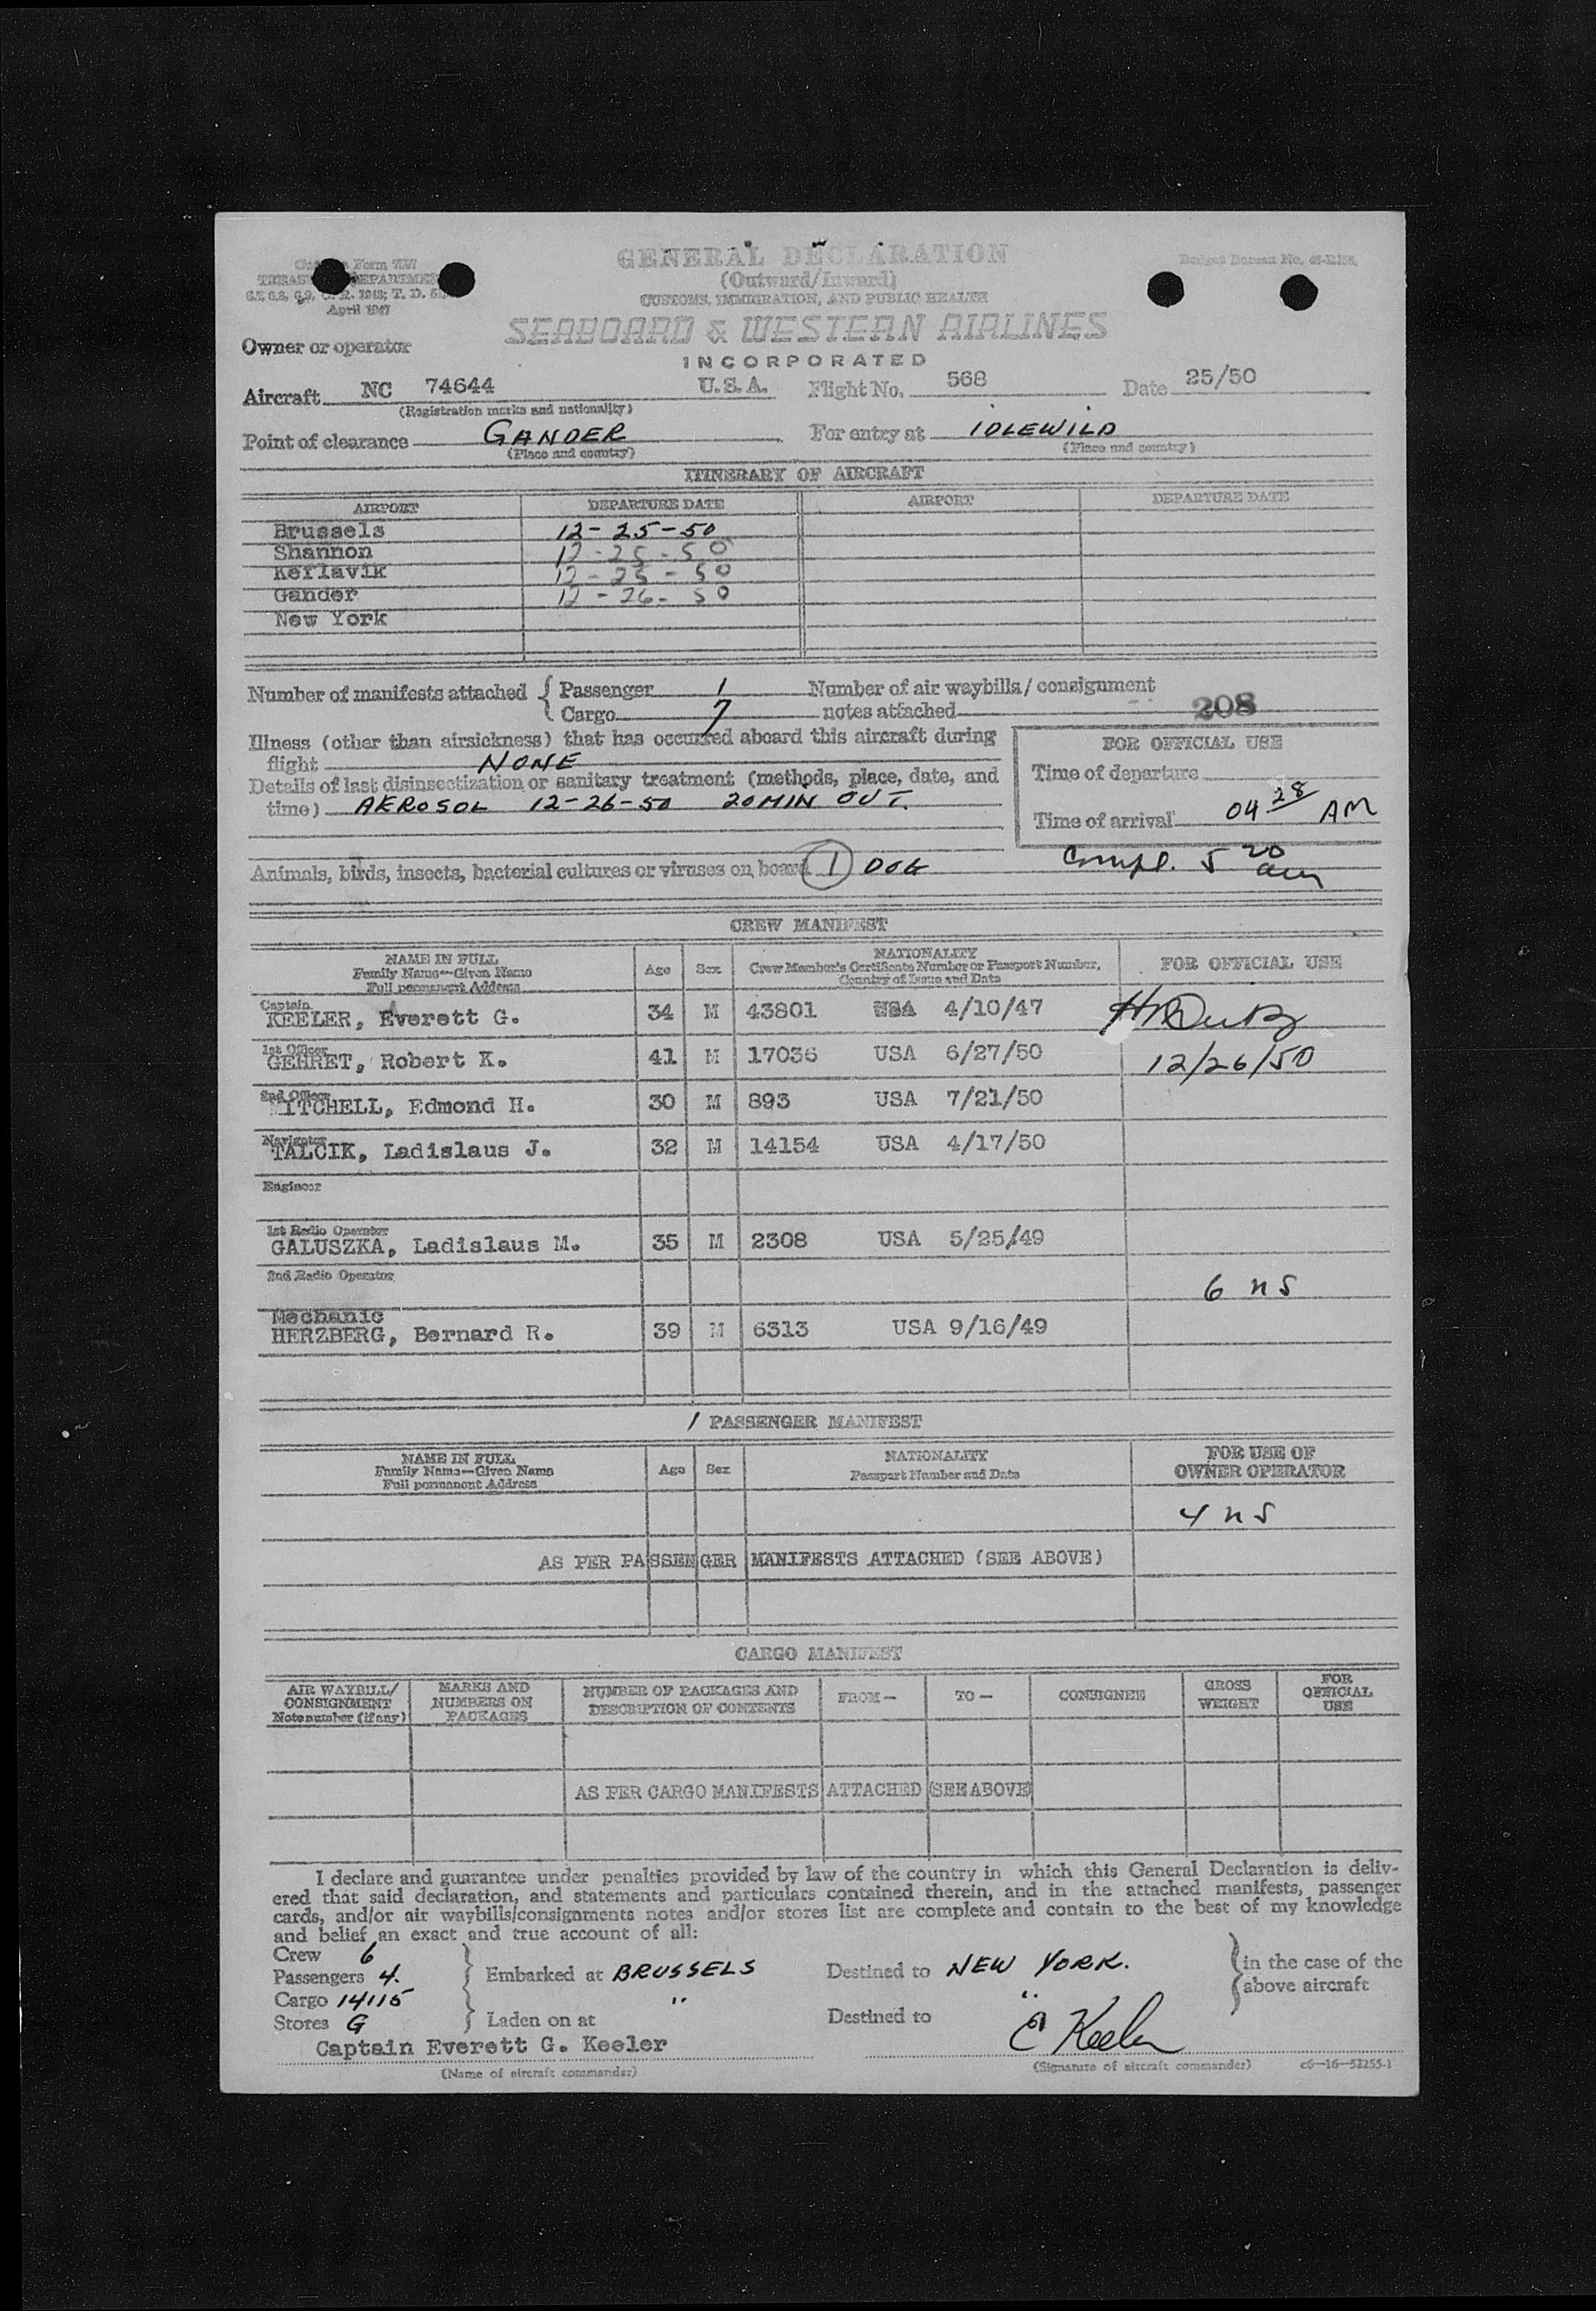 GENERAL DECLARATION
(Outward/Inward)
CUSTOMS, IMMIGRATION, AND PUBLIC HEALTH
Form 7507
April 1947
Budget Bureau No.
SEABOARD & WESTERN AIRLINES
INCORPORATED
Owner or operator
Aircraft NC 74644 U.S.A. Flight No. 568 Date 25/50
(Registration marks and nationality)
Point of clearance GANDER For entry at IDLEWILD
(Place and country) (Place and country)
ITINERARY OF AIRCRAFT
AIRPORT DEPARTURE DATE AIRPORT DEPARTURE DATE
Brussels 12-25-50
Shannon 12-25-50
Keflavik 12-25-50
Gander 12-26-50
New York
Number of manifests attached { Passenger 1 Number of air waybills/consignment
Cargo 7 notes attached 208
Illness (other than airsickness) that has occurred aboard this aircraft during
flight NONE
Details of last disinsectization or sanitary treatment (methods, place, date, and
time) AEROSOL 12-26-50 20 MIN OUT.
FOR OFFICIAL USE
Time of departure
Time of arrival 04 28 AM
Compl. 5 20 am
Animals, birds, insects, bacterial cultures or viruses on board 1 DOG
CREW MANIFEST
NAME IN FULL
Family Name—Given Name
Full permanent Address
Age Sex
NATIONALITY
Crew Member's Certificate Number or Passport Number,
Country of Issue and Date
FOR OFFICIAL USE
Captain
KEELER, Everett G. 34 M 43801 USA 4/10/47
1st Officer
GEHRET, Robert K. 41 M 17036 USA 6/27/50 12/26/50
2nd Officer
MITCHELL, Edmond H. 30 M 893 USA 7/21/50
Navigator
TALCIK, Ladislaus J. 32 M 14154 USA 4/17/50
Engineer
1st Radio Operator
GALUSZKA, Ladislaus M. 35 M 2308 USA 5/25/49
2nd Radio Operator
6 ns
Mechanic
HERZBERG, Bernard R. 39 M 6313 USA 9/16/49
/ PASSENGER MANIFEST
NAME IN FULL
Family Name—Given Name
Full permanent Address
Age Sex
NATIONALITY
Passport Number and Date
FOR USE OF
OWNER OPERATOR
4 ns
AS PER PASSENGER MANIFESTS ATTACHED (SEE ABOVE)
CARGO MANIFEST
AIR WAYBILL/
CONSIGNMENT
Note number (if any)
MARKS AND
NUMBERS ON
PACKAGES
NUMBER OF PACKAGES AND
DESCRIPTION OF CONTENTS
FROM— TO— CONSIGNEE
GROSS
WEIGHT
FOR
OFFICIAL
USE
AS PER CARGO MANIFESTS ATTACHED (SEE ABOVE)
I declare and guarantee under penalties provided by law of the country in which this General Declaration is deliv-
ered that said declaration, and statements and particulars contained therein, and in the attached manifests, passenger
cards, and/or air waybills/consignments notes and/or stores list are complete and contain to the best of my knowledge
and belief an exact and true account of all:
Crew 6
Passengers 4. } Embarked at BRUSSELS Destined to NEW YORK. } in the case of the
Cargo 14115 " " { above aircraft
Stores G } Laden on at Destined to
Captain Everett G. Keeler E Keeler
(Name of aircraft commander) (Signature of aircraft commander) c6—16—52255-1